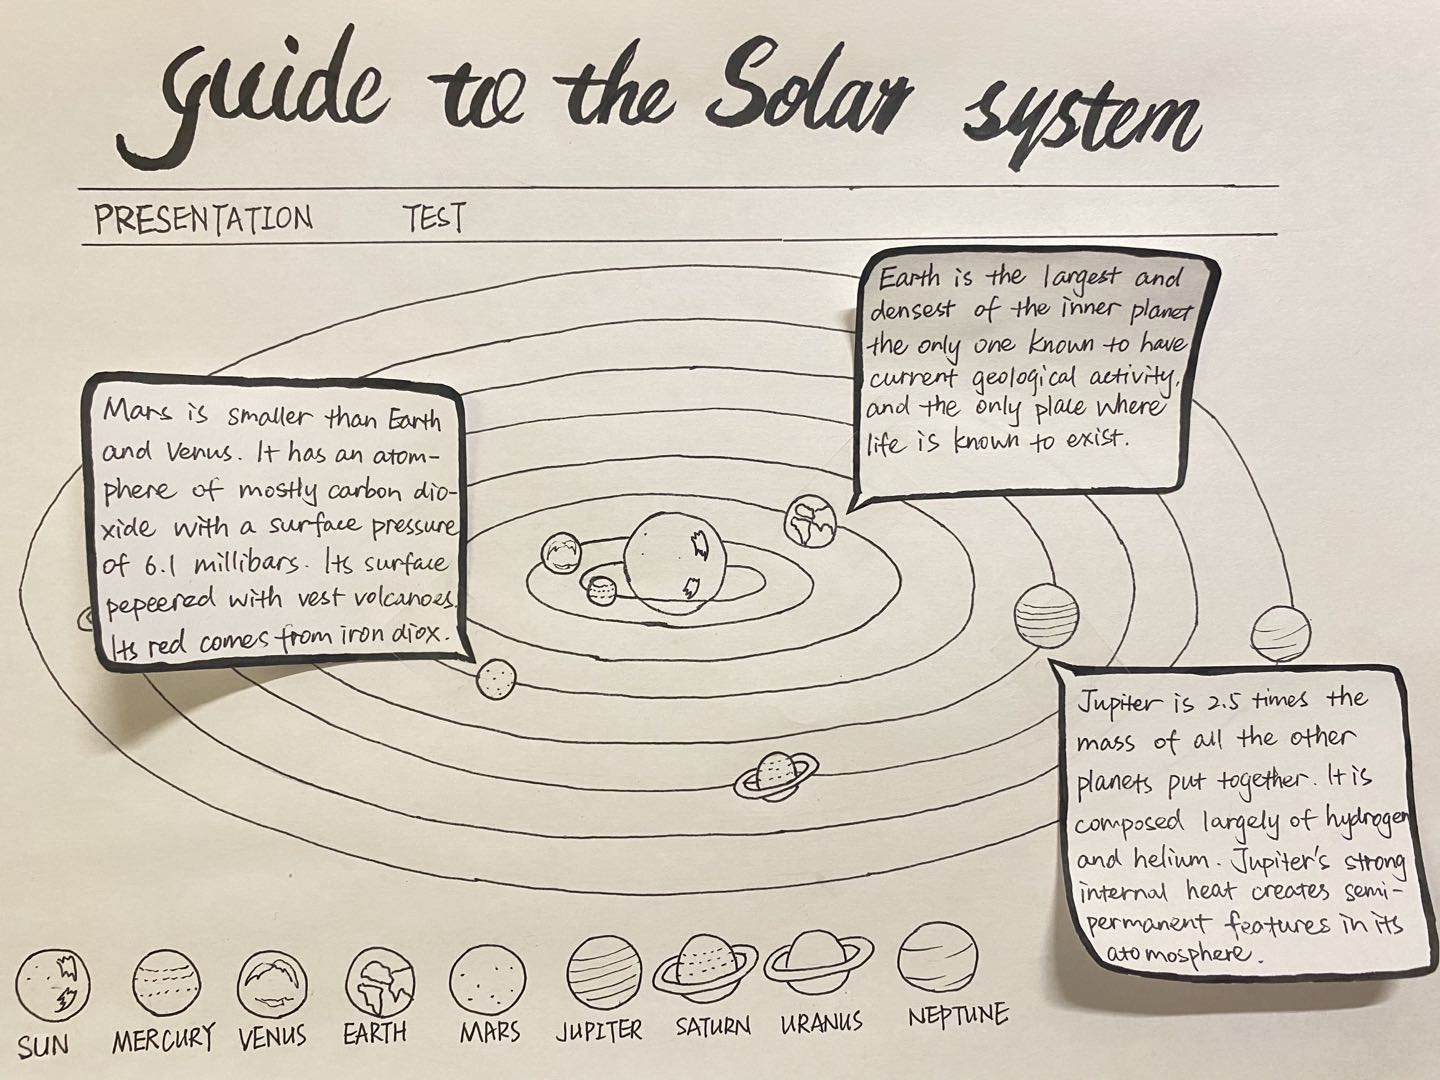 guide to the Solar system
PRESENTATION TEST
Earth is the largest and
densest of the inner planet
the only one known to have
current geological activity,
and the only place where
life is known to exist.
Mars is smaller than Earth
and Venus. It has an atom-
phere of mostly carbon dio-
xide with a surface pressure
of 6.1 millibars. Its surface
pepeered with vest volcanoes.
Its red comes from iron diox.
Jupiter is 2.5 times the
mass of all the other
planets put together. It is
composed largely of hydrogen
and helium. Jupiter's strong
internal heat creates semi-
permanent features in its
atomosphere.
SUN MERCURY VENUS EARTH MARS JUPITER SATURN URANUS NEPTUNE